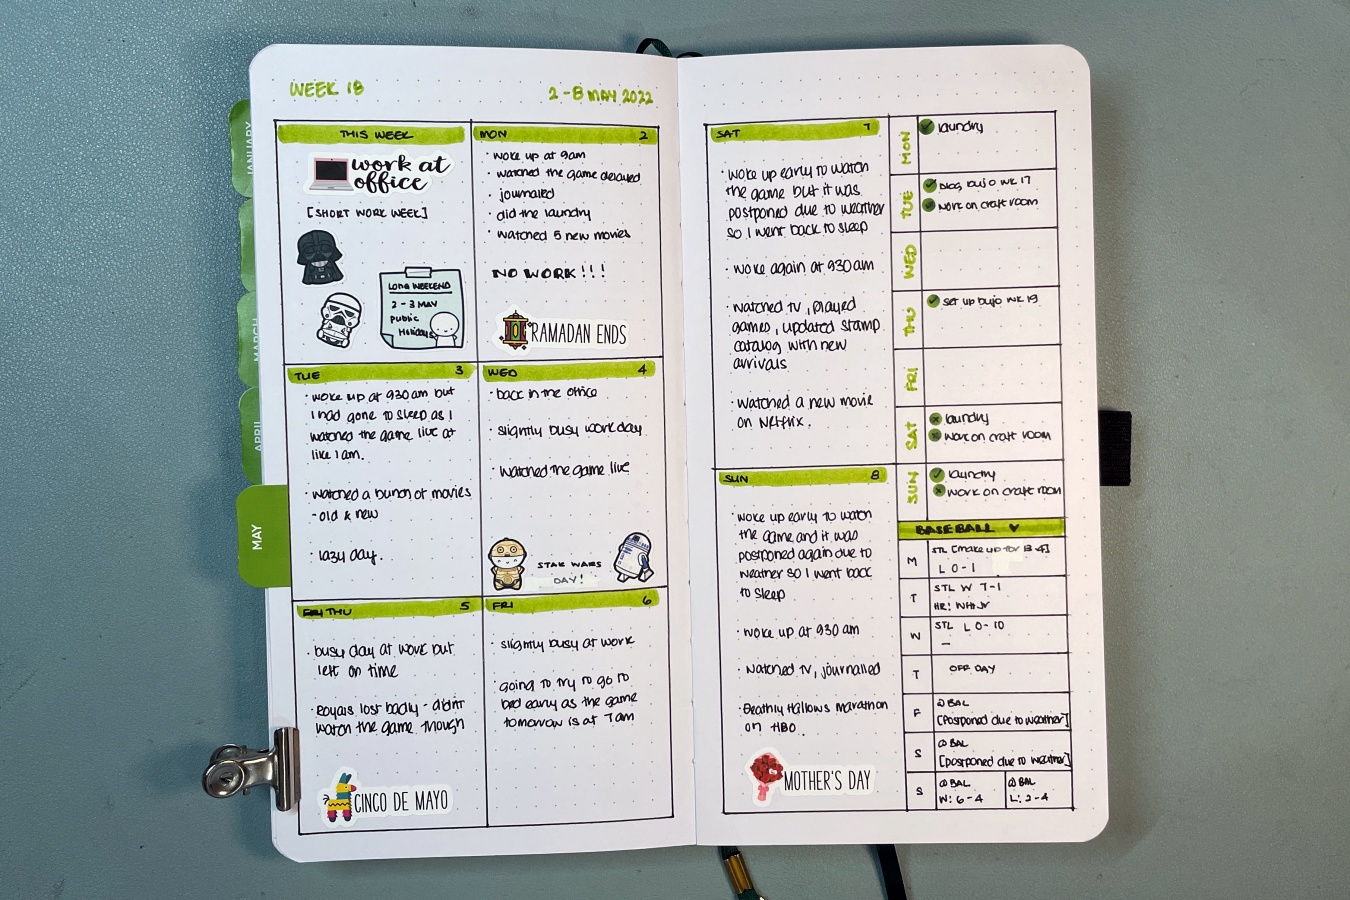 WEEK 18
2-8 MAY 2022
THIS WEEK
work at
office
[SHORT WORK WEEK]
LONG WEEKEND
2-3 MAY
public
Holidays
MON 2
· woke up at 9am
· watched the game delayed
· journaled
· did the laundry
· watched 5 new movies
NO WORK!!!
RAMADAN ENDS
TUE 3
· woke up at 930am but
I had gone to sleep as I
watched the game live at
like 1am.
· watched a bunch of movies
- old & new
· lazy day.
WED 4
· back in the office
· slightly busy work day
· watched the game live
STAR WARS
DAY!
THU 5
· busy day at work but
left on time
· Royals lost badly - didn't
watch the game though
CINCO DE MAYO
FRI 6
· slightly busy at work
· going to try to go to
bed early as the game
tomorrow is at 7am
SAT 7
· woke up early to watch
the game but it was
postponed due to weather
so I went back to sleep
· woke again at 930am
· watched tv, played
games, updated stamp
catalog with new
arrivals
· watched a new movie
on Netflix.
SUN 8
· woke up early to watch
the game and it was
postponed again due to
weather so I went back
to sleep
· woke up at 930 am
· watched tv, journalled
· Deathly Hallows marathon
on HBO.
MOTHER'S DAY
MON
laundry
TUE
blog bujo wk 17
work on craft room
WED
THU
set up bujo wk 19
FRI
SAT
laundry
work on craft room
SUN
laundry
work on craft room
BASEBALL ♥
M
STL [make up for 13-4]
L 0-1
T
STL W 7-1
HR: Whit Jr
W
STL L 0-10
—
T
OFF DAY
F
@ BAL
[Postponed due to weather]
S
@ BAL
[postponed due to weather]
S
@ BAL
W: 6-4
@ BAL
L: 2-4
JANUARY
MARCH
APRIL
MAY